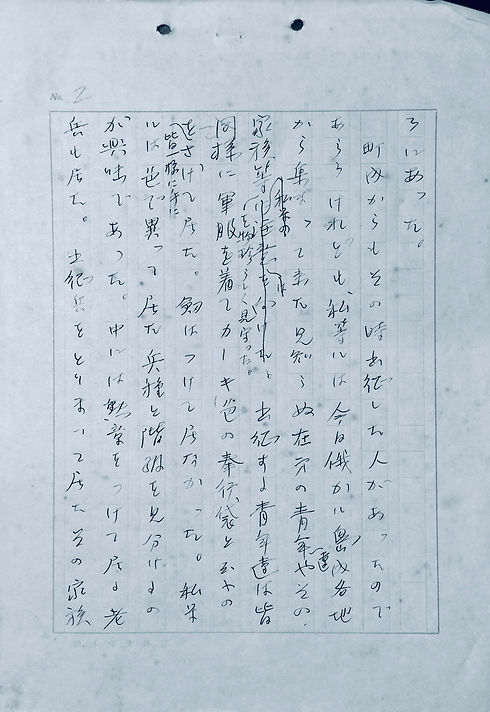 No. 2
ろにあった。
町内からもその時出征した人があったので
あらうけれども、私等には今日俄かに島内各地
から集まって来た見知らぬ在方の青年達やその
家族等 を物珍らしく見守った。出征する青年達は皆
同様に軍服を着てカーキ色の奉公袋と
皆一様に手に
をさげて居た。剣はつけて居なかった。私等
には色で異って居た兵種と階級を見分けるの
が興味であった。中には勲章をつけて居る老
兵も居た。出征兵をとりまいて居たその家族